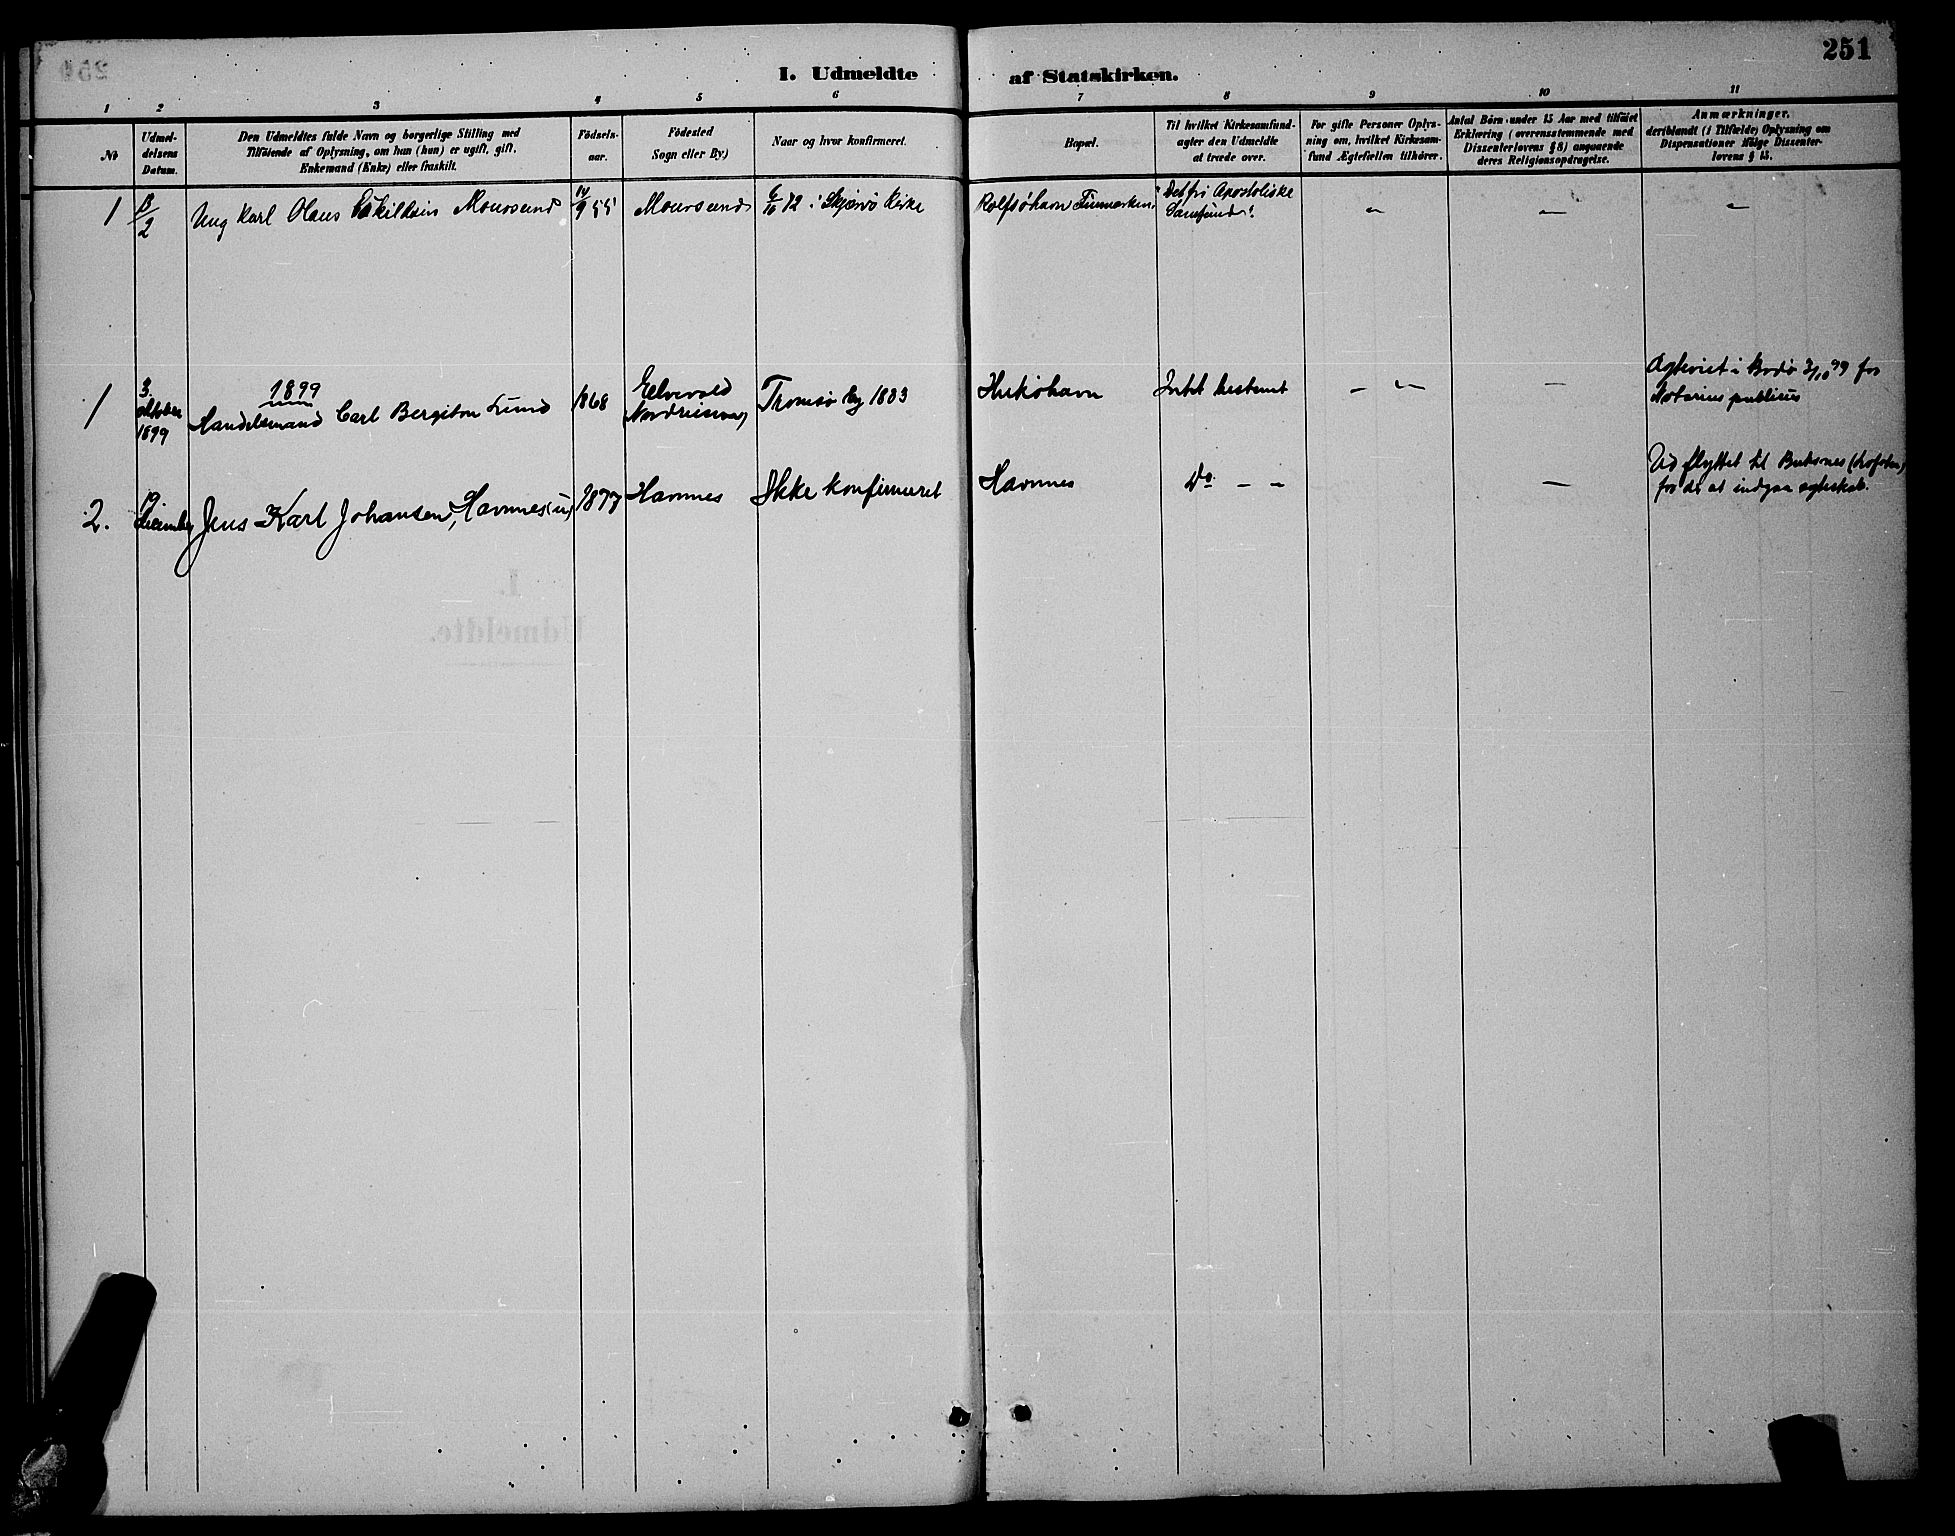 251
I. Udmeldte af Statskirken.
1 2 3 4 5 6 7 8 9 10 11
№
Udmel-
delsens
Datum.
Den Udmeldtes fulde Navn og borgerlige Stilling med
Tilföiende af Oplysning, om han (hun) er ugift, gift,
Enkemand (Enke) eller fraskilt.
Födsels-
aar.
Födested
Sogn eller By)
Naar og hvor konfirmeret.
Bopæl.
Til hvilket Kirkesamfund-
agter den Udmeldte
at træde over.
For gifte Personer Oplys-
ning om, hvilket Kirkesam-
fund Ægtefællen tilhører.
Antal Börn under 15 Aar med tilföiet
Erklæring (overensstemmende med
Dissenterlovens § 8) angaaende
deres Religionsopdragelse.
Anmærkninger,
deriblandt (i Tilfælde) Oplysning om
Dispensationer ifölge Dissenter-
lovens § 15.
1
Ung Karl Olaus Eskildsen Maursund
Maursund
6/10 72 i Skjervø Kirke
Rolfsøhavn Finmarken
"Det fri Apostoliske
Samfund".
1899
1
3.
oktober
1899
Handelsmand Carl Bergiton Lund
1868
Elvevold
Nordreisen
Tromsø by 1883
Intet bestemt
Agteviet i Bodø 3/10 99 for
Notarius publicus
2.
19
Decemb
Jens Karl Johansen, Havnnes (u)
1877
Havnnes
Ikke konfirmeret
Havnnes
Do
Ud flyttet til Buksnes (Lofoten)
for der at indgaa egteskab.
I.
Udmeldte.